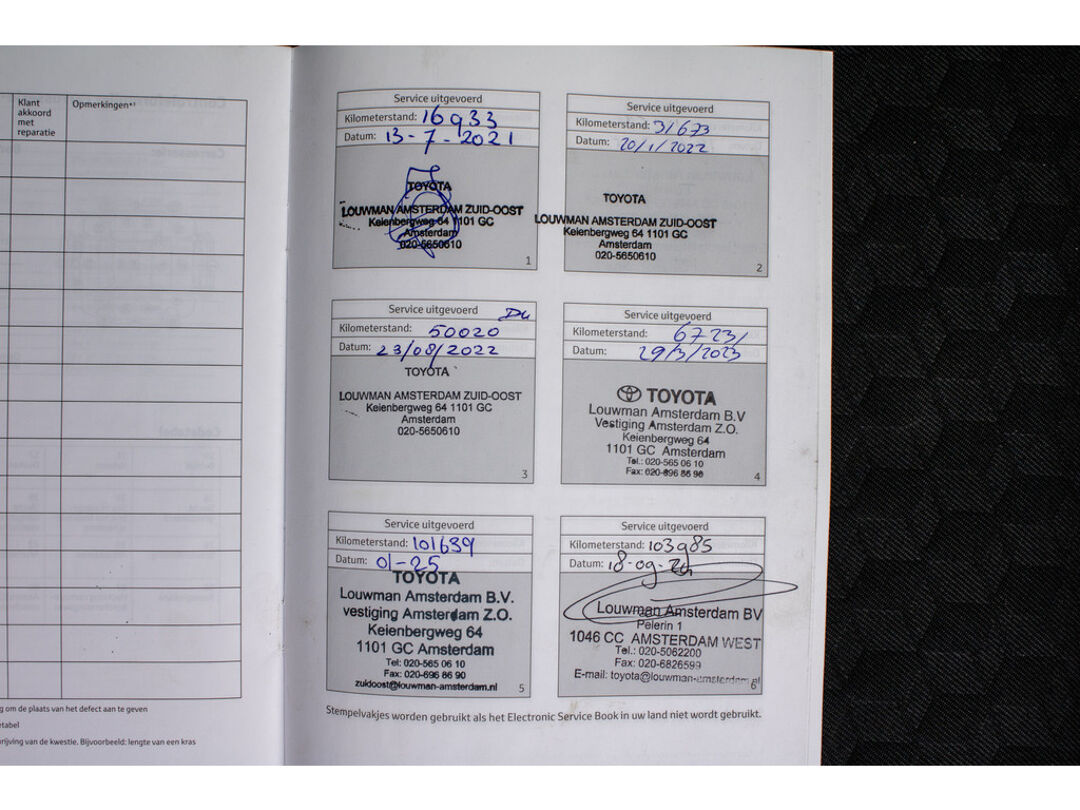 Klant
akkoord
met
reparatie
Opmerkingen*¹
g om de plaats van het defect aan te geven
etabel
rijving van de kwestie. Bijvoorbeeld: lengte van een kras
Service uitgevoerd
Kilometerstand: 16933
Datum: 13-7-2021
TOYOTA
LOUWMAN AMSTERDAM ZUID-OOST
Keienbergweg 64 1101 GC
Amsterdam
020-5650610
1
Service uitgevoerd
Kilometerstand: 31673
Datum: 20/1/2022
TOYOTA
LOUWMAN AMSTERDAM ZUID-OOST
Keienbergweg 64 1101 GC
Amsterdam
020-5650610
2
Service uitgevoerd
Kilometerstand: 50020
Datum: 23/08/2022
TOYOTA
LOUWMAN AMSTERDAM ZUID-OOST
Keienbergweg 64 1101 GC
Amsterdam
020-5650610
3
Service uitgevoerd
Kilometerstand: 67231
Datum: 29/3/2023
TOYOTA
Louwman Amsterdam B.V
Vestiging Amsterdam Z.O.
Keienbergweg 64
1101 GC Amsterdam
Tel.: 020-565 06 10
Fax: 020-696 86 90
4
Service uitgevoerd
Kilometerstand: 101639
Datum: 01-25
TOYOTA
Louwman Amsterdam B.V.
vestiging Amsterdam Z.O.
Keienbergweg 64
1101 GC Amsterdam
Tel: 020-565 06 10
Fax: 020-696 86 90
zuidoost@louwman-amsterdam.nl
5
Service uitgevoerd
Kilometerstand: 103985
Datum: 18-09-
Louwman Amsterdam BV
Pelerin 1
1046 CC AMSTERDAM WEST
Tel.: 020-5062200
Fax: 020-6826599
E-mail: toyota@louwman-amsterdam.nl
6
Stempelvakjes worden gebruikt als het Electronic Service Book in uw land niet wordt gebruikt.